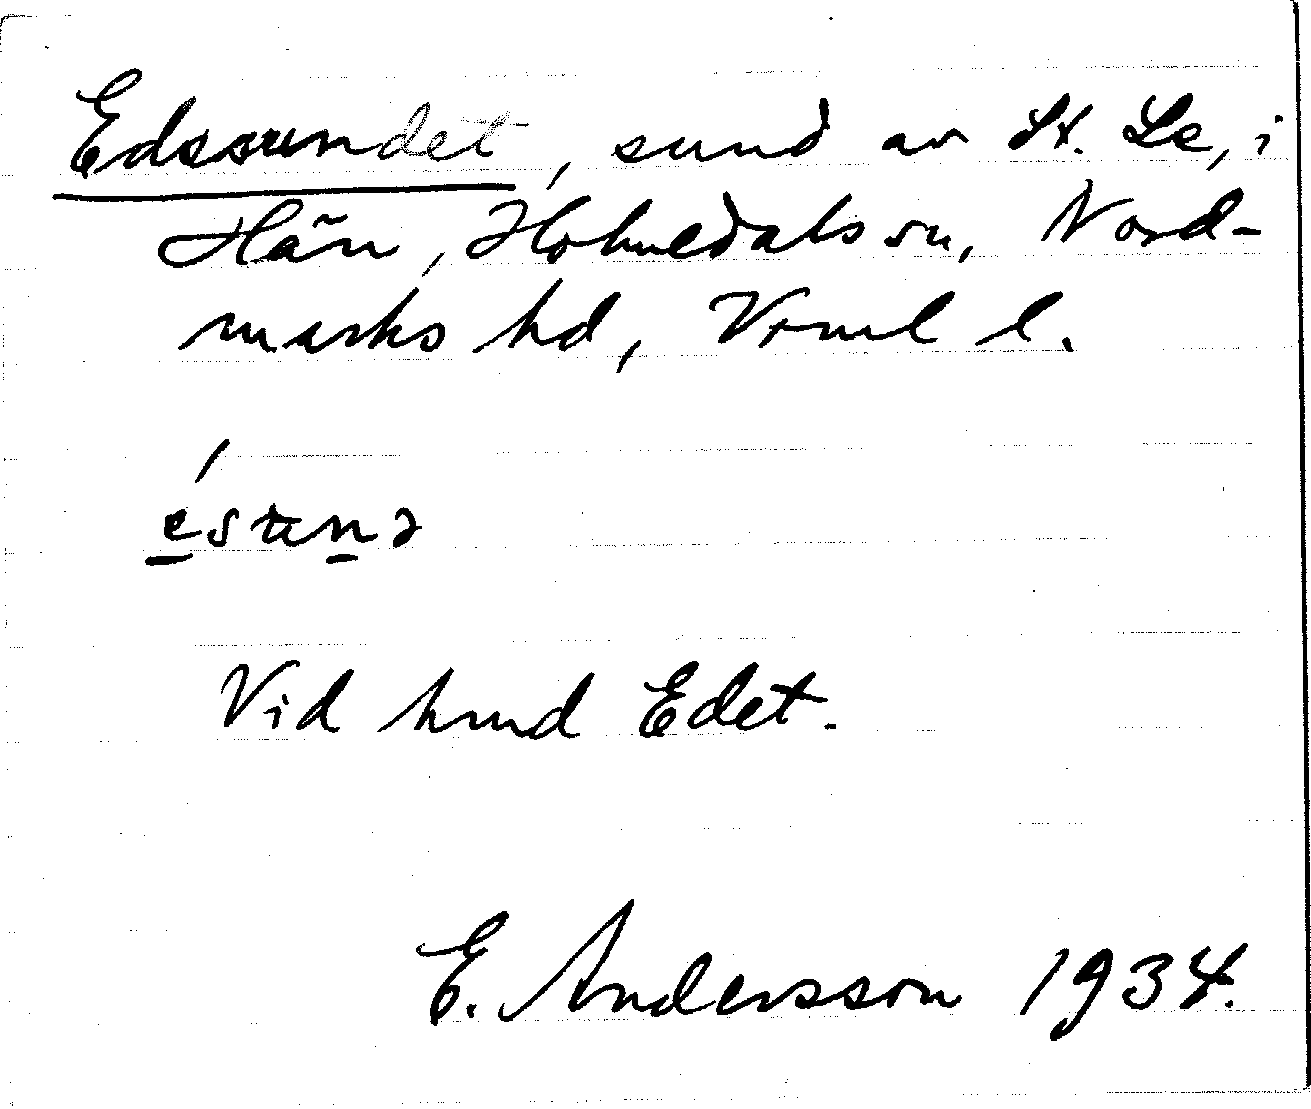 Edssundet, sund av St. Le, i
Hän, Holmedals sn, Nord-
marks hd, Vrml l.
Vid hmd Edet.
E. Andersson 1934.